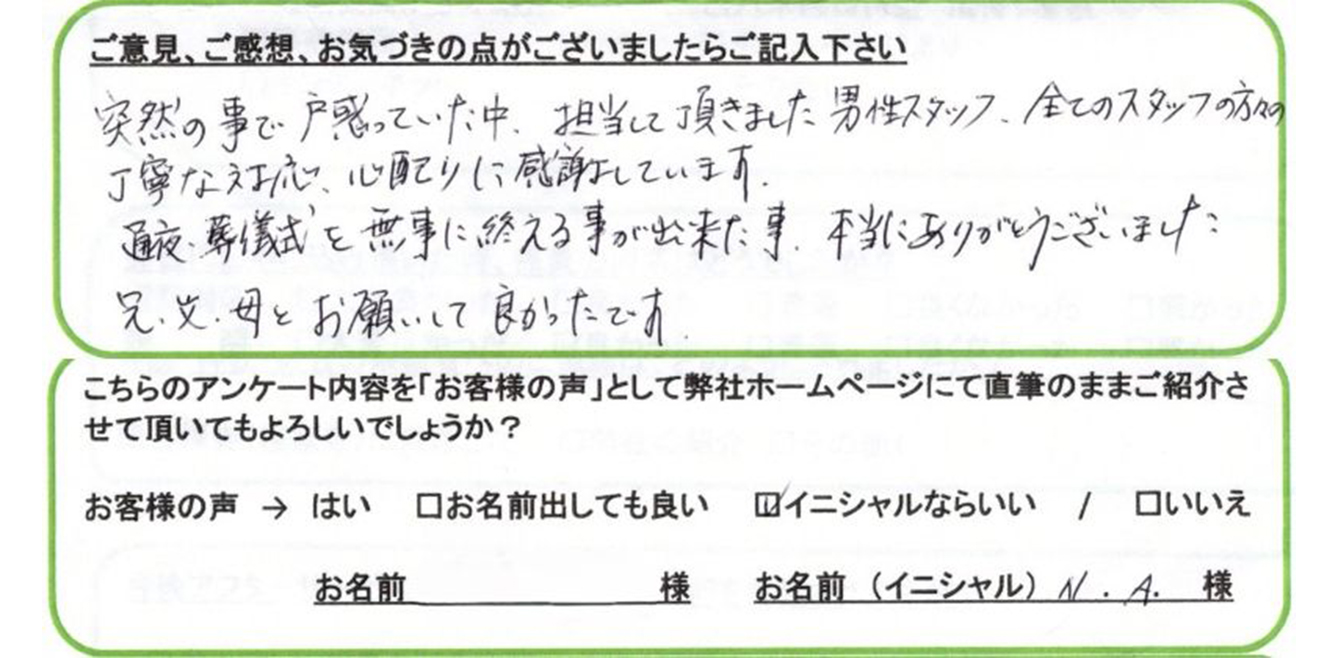 ご意見、ご感想、お気づきの点がございましたらご記入下さい
突然の事で戸惑っていた中、担当して頂きました男性スタッフ、全てのスタッフの方々の
丁寧な対応、心配りに感謝しています。
通夜・葬儀式を無事に終える事が出来た事、本当にありがとうございました
兄・父・母とお願いして良かったです。
こちらのアンケート内容を「お客様の声」として弊社ホームページにて直筆のままご紹介さ
せて頂いてもよろしいでしょうか？
お客様の声 → はい □お名前出しても良い ☑イニシャルならいい / □いいえ
お名前 様 お名前（イニシャル） N.A. 様